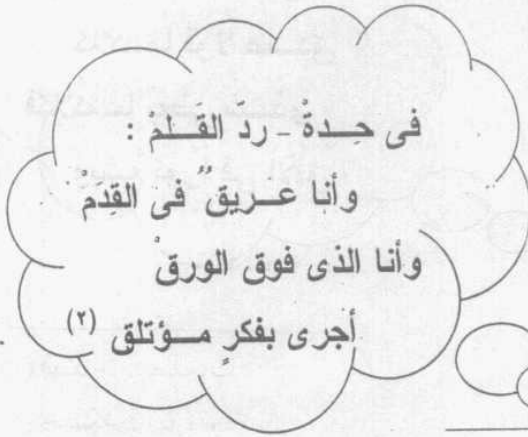 فى حِـدةْ - ردّ القَـلمْ :
وأنا عـريقٌ فى القِدَمْ
وأنا الذى فوق الورقْ
أجرى بفكرٍ مـؤتلق (٢)